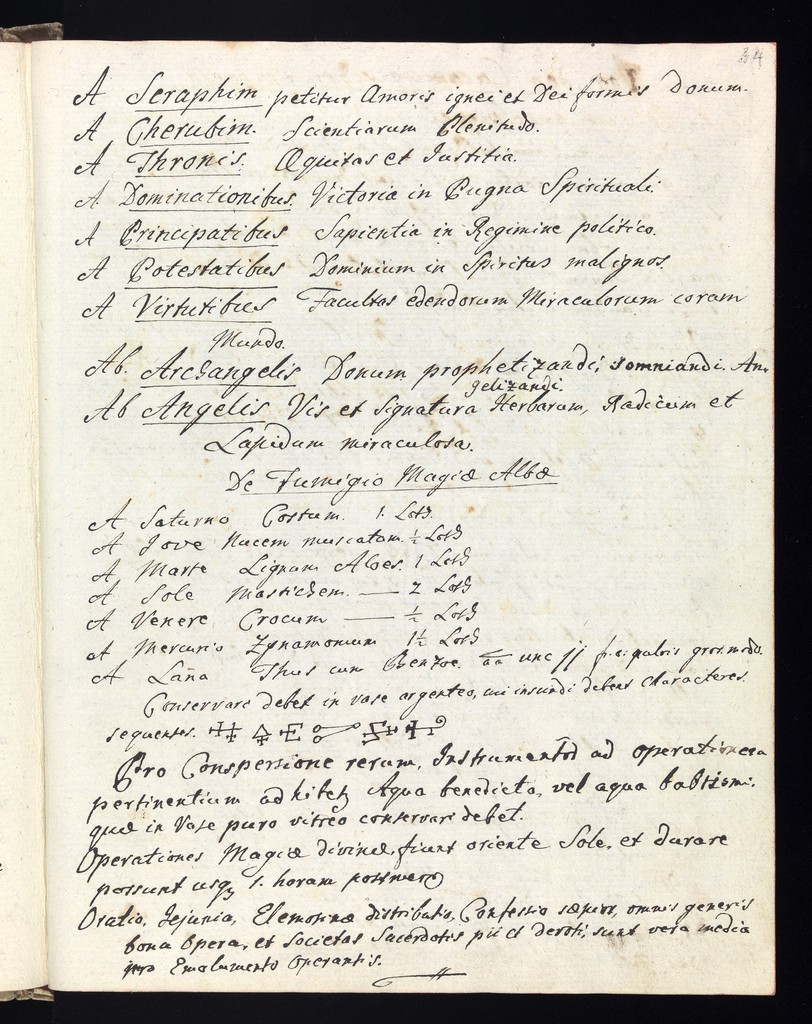 34
A Seraphim petitur Amoris ignei et Dei formis Donum.
A Cherubim. Scientiarum Plenitudo.
A Thronis. Æquitas et Justitia.
A Dominationibus Victoria in Pugna Spirituali.
A Principatibus Sapientia in Regimine politico.
A Potestatibus Dominium in Spiritus malignos.
A Virtutibus Facultas edendorum Miraculorum coram
Mundo.
Ab. Archangelis Donum prophetizandi, somniandi. An-
gelizandi.
Ab Angelis Vis et Signatura Herbarum, Radicum et
Lapidum miraculosa.
De Fumigio Magiæ Albæ
A Saturno Costum. 1. Loth.
A Jove Nucem muscatam. ½ Loth
A Marte Lignum Aloes. 1 Loth
A Sole Mastichem. — 2 Loth
A Venere Crocum — ½ Loth
A Mercurio Zynamomum 1½ Loth
A Luna Thus cum Benzoe. aa unc jj pulvis gros. modo.
Conservare debet in vase argenteo, cui insundi debent Characteres
sequentes.
Pro Conspersione rerum, Instrumentor ad operationem
pertinentium adhibetz Aqua benedicta, vel aqua babtismi,
quæ in Vase puro vitreo conservari debet.
Operationes Magiæ divinæ, fiunt oriente Sole, et durare
possunt usqz 1. horam
Oratio, Jejunia, Elemosinæ distributio, Confessio sæpior, omnis generis
bona Opera, et Societas Sacerdotis pii et devoti, sunt vera media
pro Emolumento Operantis.